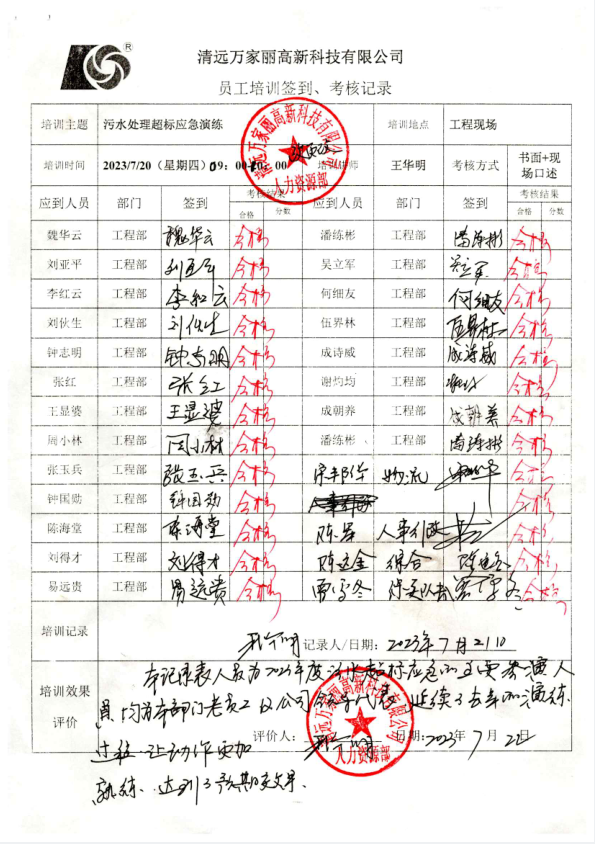 ®
清远万家丽高新科技有限公司
员工培训签到、考核记录
培训主题 污水处理超标应急演练 培训地点 工程现场
培训时间 2023/7/20（星期四）09：00-10：00 王华明 考核方式 书面+现场口述
应到人员 部门 签到 考核结果 应到人员 部门 签到 考核结果
合格 分数 合格 分数
魏华云 工程部 魏华云 合格 潘练彬 工程部 潘练彬 合格
刘亚平 工程部 刘亚平 合格 吴立军 工程部 吴立军 合格
李红云 工程部 李红云 合格 何细友 工程部 何细友 合格
刘伙生 工程部 刘伙生 合格 伍界林 工程部 伍界林 合格
钟志明 工程部 钟志明 合格 成诗威 工程部 成诗威 合格
张红 工程部 张红 合格 谢均均 工程部 合格
王显婆 工程部 王显婆 合格 成朝养 工程部 成朝养 合格
周小林 工程部 周小林 合格 潘练彬 工程部 潘练彬 合格
张玉兵 工程部 张玉兵 合格 物流 合格
钟国勋 工程部 钟国勋 合格
陈海堂 工程部 陈海堂 合格 陈 人事行政 合格
刘得才 工程部 刘得才 合格 综合 合格
易远贵 工程部 易远贵 合格 合格
清远万家丽高新科技有限公司
人力资源部
培训记录
记录人/日期：2023年7月21日
本记录表人员为2023年度污水超标应急的主要参演人
员，均为本部门老员工及公司领导代表，延续了去年的演练
培训效果
评价
过程，让动作更加
评价人： 日期：2023年7月22日
熟练、达到了预期效果。
清远万家丽高新科技有限公司
人力资源部